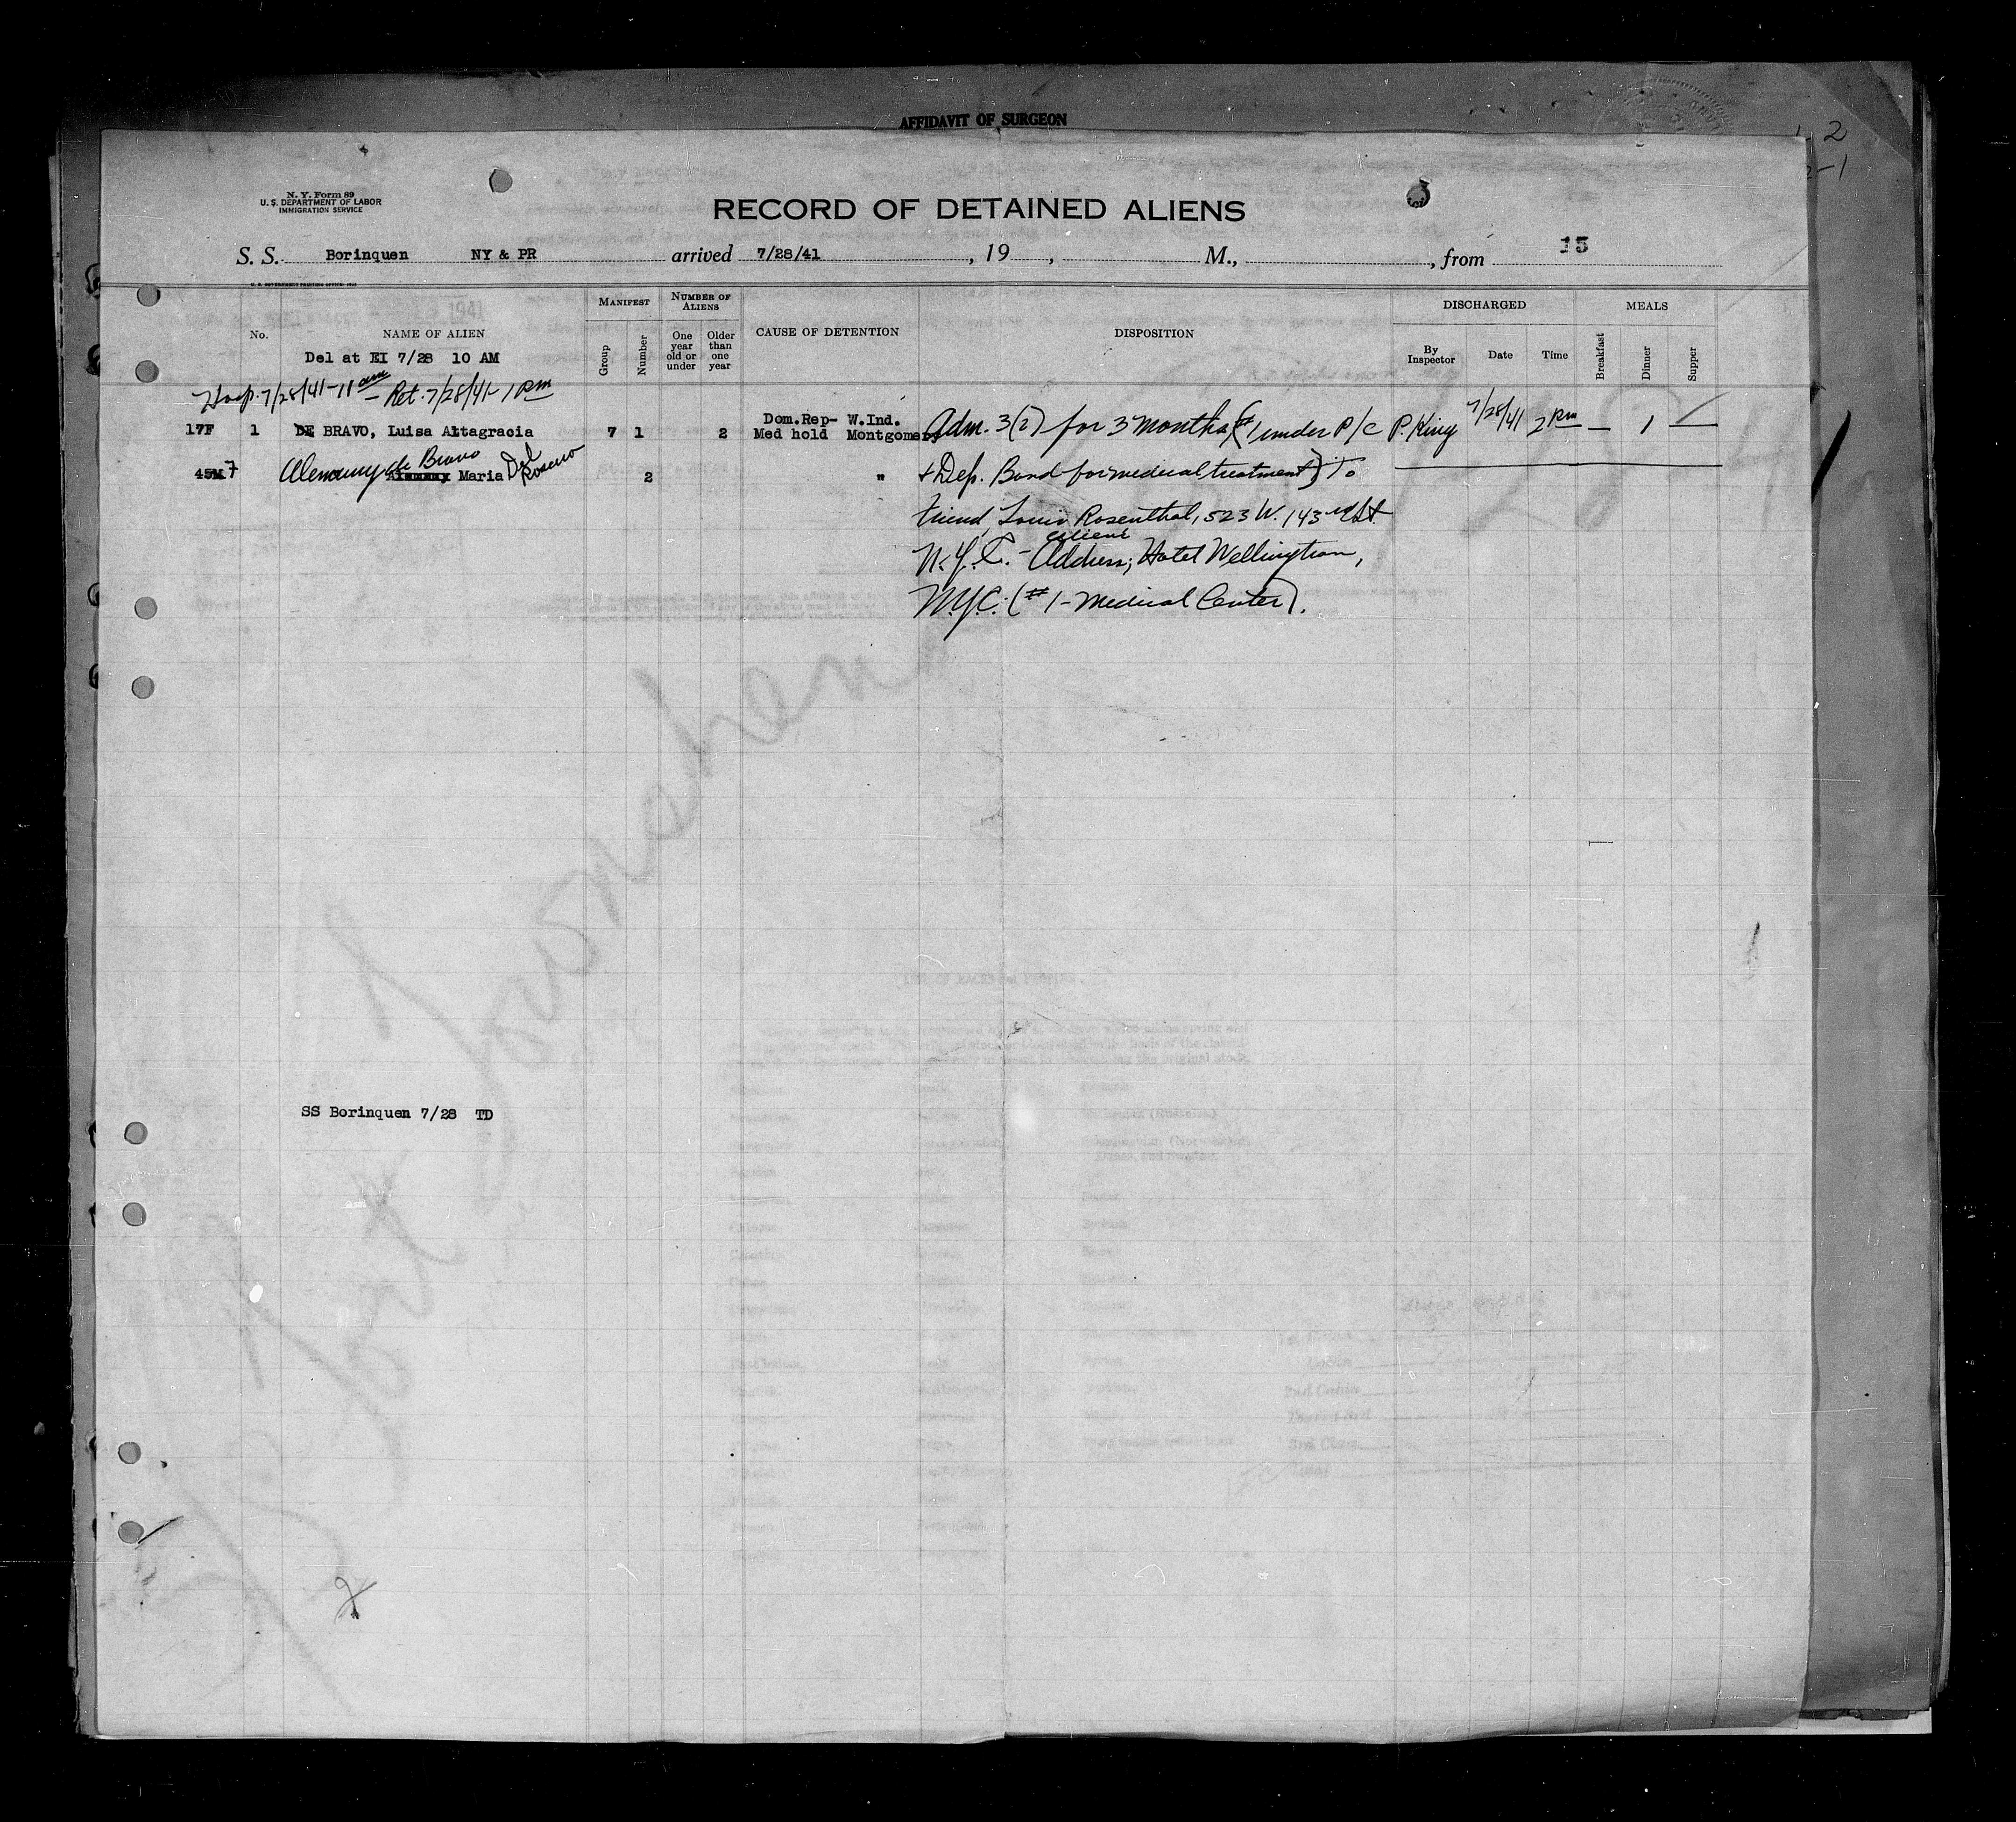 AFFIDAVIT OF SURGEON
2
N. Y. Form 89
U. S. DEPARTMENT OF LABOR
IMMIGRATION SERVICE
RECORD OF DETAINED ALIENS
3
S. S. Borinquen NY & PR arrived 7/28/41, 19, M., from 15
U. S. GOVERNMENT PRINTING OFFICE
1941
No. NAME OF ALIEN MANIFEST Group Number NUMBER OF ALIENS One year old or under Older than one year CAUSE OF DETENTION DISPOSITION DISCHARGED By Inspector Date Time MEALS Breakfast Dinner Supper
Del at EI 7/28 10 AM
Hosp. 7/28/41-11 am - Ret. 7/28/41- 1 PM
17F 1 DE BRAVO, Luisa Altagracia 7 1 2 Dom.Rep- W.Ind. Med hold Montgomery Adm. 3(2) for 3 months (#1 under P/C P. King 7/28/41 2 PM — 1 —
45M 7 Alemany de Bravo Maria Del Rosario 2 " + Dep. Bond for medical treatment) To
friend, Louis Rosenthal, 523 W. 143rd St.
N.Y.C. - aliens' Address; Hotel Wellington,
N.Y.C. (#1-Medical Center).
SS Borinquen 7/28 TD